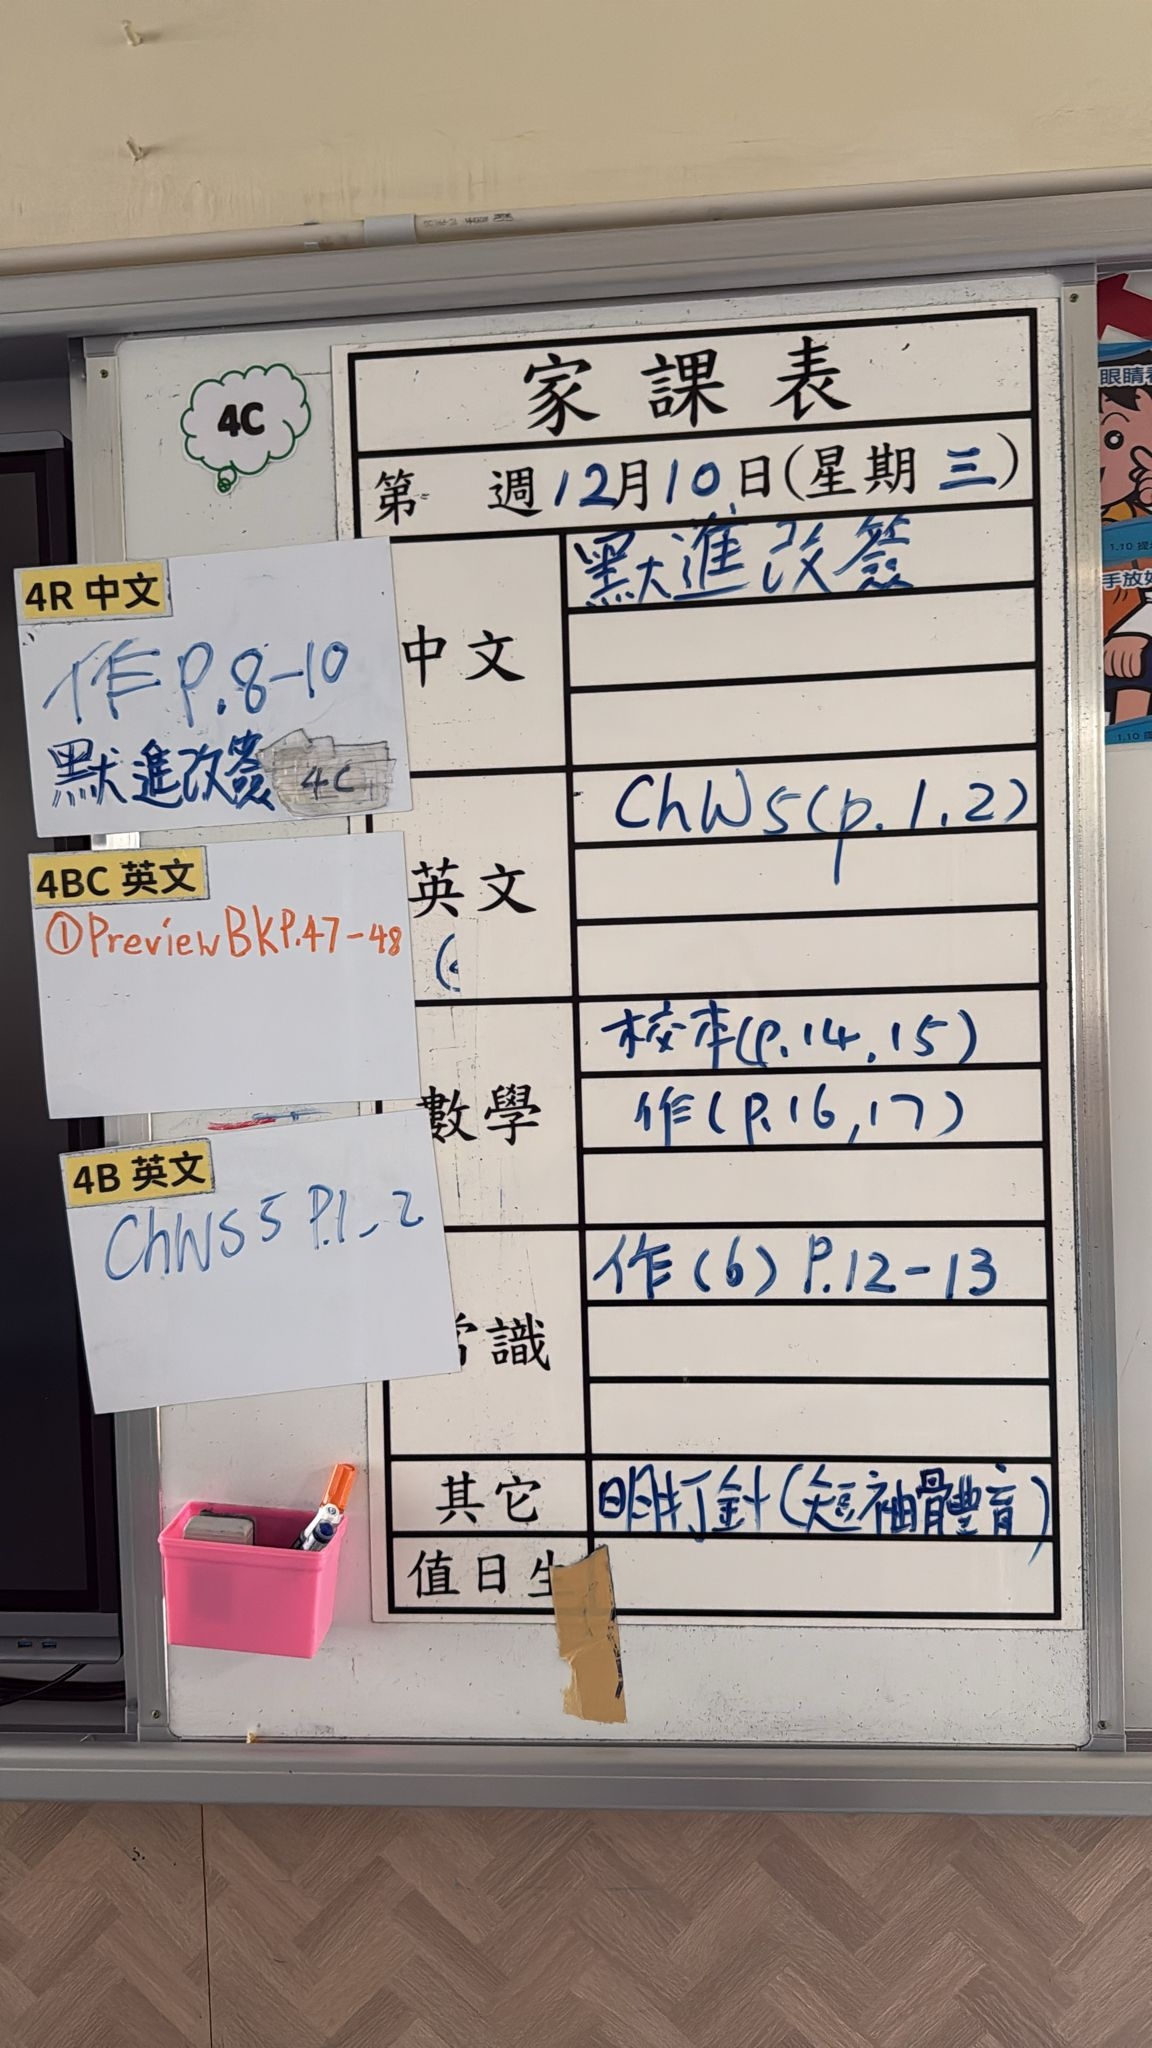 4C
家課表
第 週12月10日(星期三)
4R 中文
作P.8-10
默進改簽 4C
4BC 英文
①Preview BKP.47-48
4B 英文
ChWS 5 P.1-2
中文
默進改簽
英文
ChW 5 (p.1.2)
數學
校本(p.14,15)
作(p.16,17)
常識
作(6) P.12-13
其它
明打針(短袖體育)
值日生
眼睛
1.10
手放
1.10